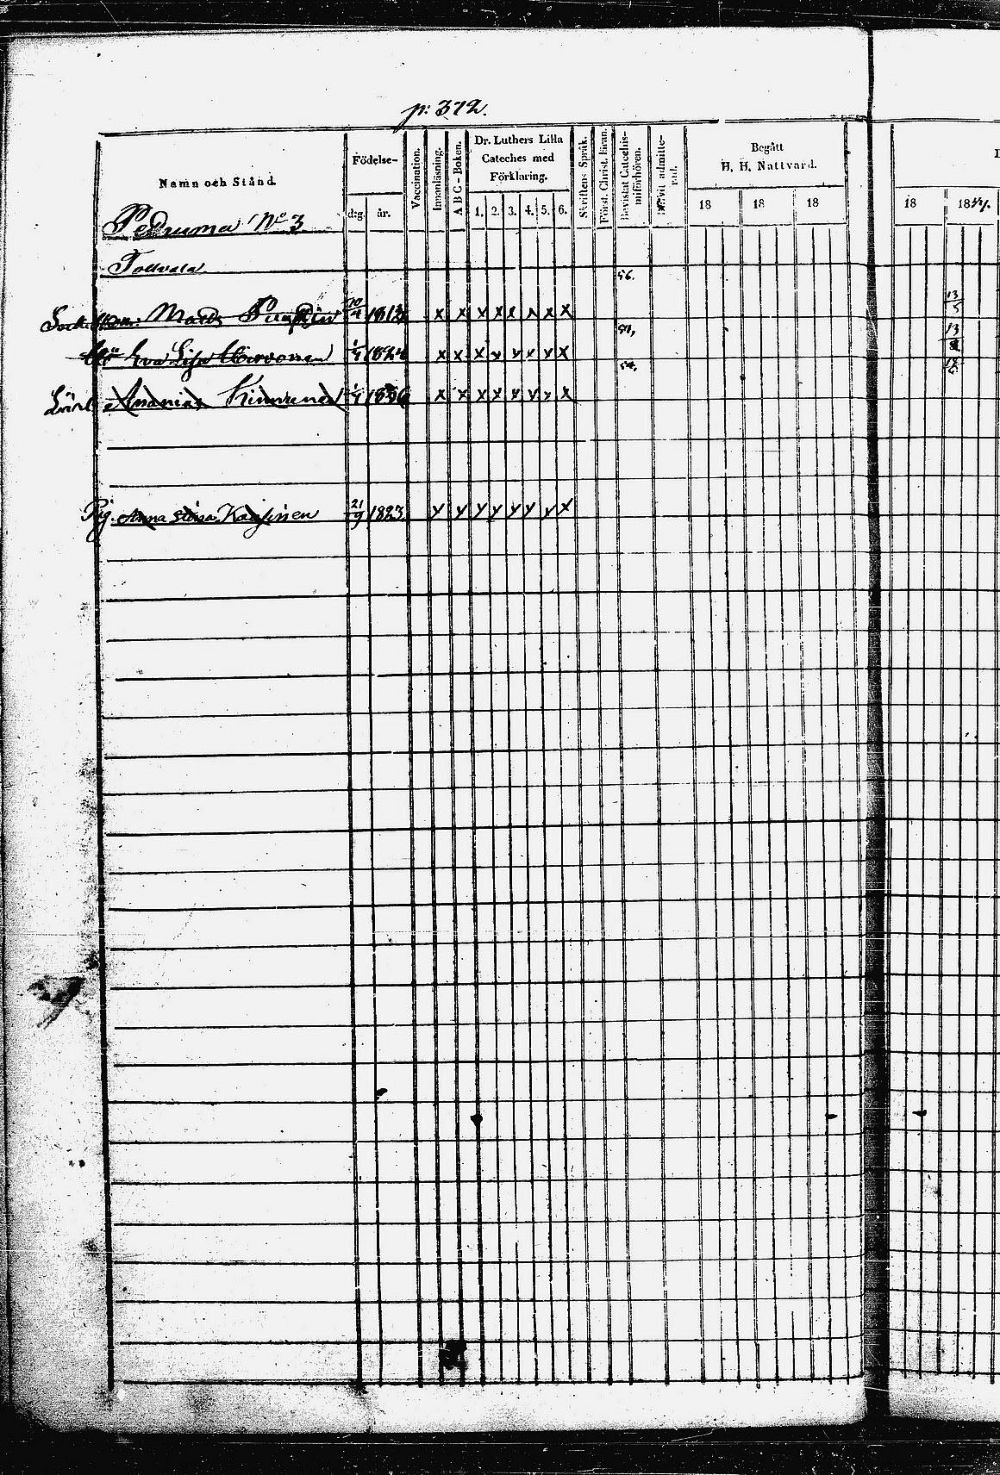 p: 372.
Namn och Stånd.
Födelse-
dag.
år.
Vaccination.
Innanläsning.
A B C - Boken.
Dr. Luthers Lilla
Cateches med
Förklaring.
1. 2. 3. 4. 5. 6.
Skriftens Språk.
Först. Christ. läran.
Bevistat Catechis-
miförhören.
Blifvit admitte-
rad.
Begått
H. H. Nattvard.
18 18 18
18 18
Pedruma No 3
Tollvala
56.
Mats 10/4 181 x x x x x x x x 13/5
54,
Eva Lisa 1/1 182 x x x x x x x x 13
Lärl Ananias Kinnunen 1/1 1836 x x x x x x x x
Pig. Anna Stina 21/9 1823. x x x x x x x x